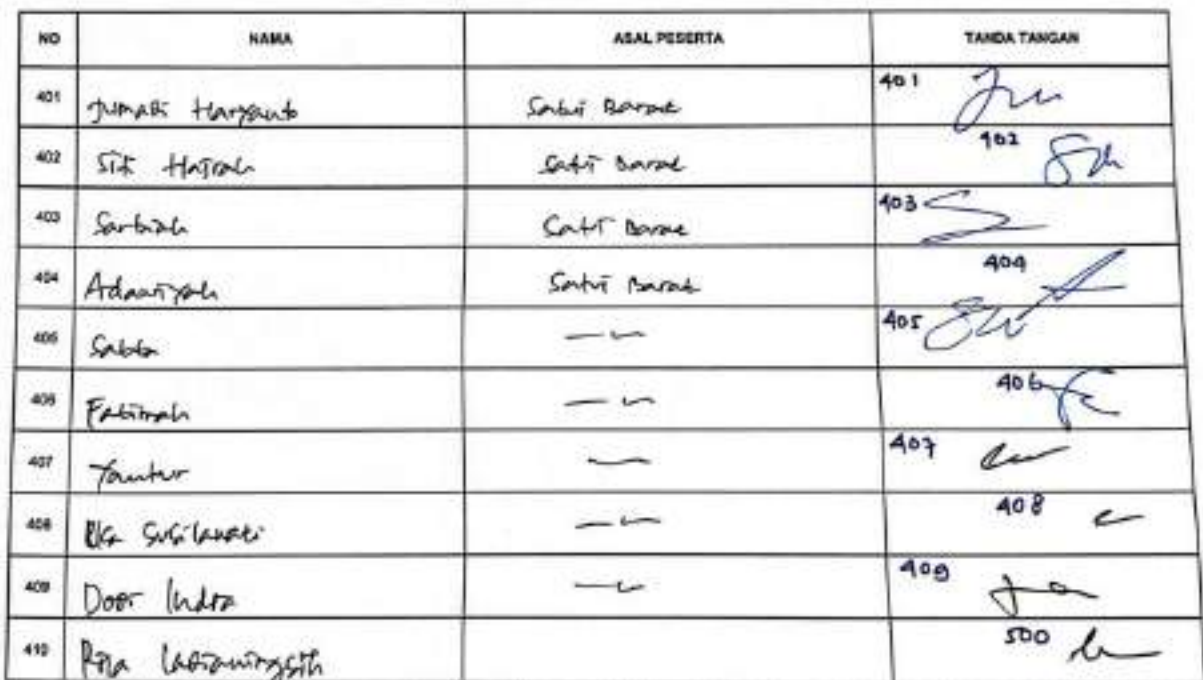 NO NAMA ASAL PESERTA TANDA TANGAN
401 Jumadi Haryanto Satui Barat 401
402 Siti Hajrah Satui Barat 402
403 Sarbiah Satui Barat 403
404 Adawiyah Satui Barat 404
405 405
406 Fatimah 406
407 Yantur 407
408 Susilawati 408
409 Door Indra 409
410 Rita 500